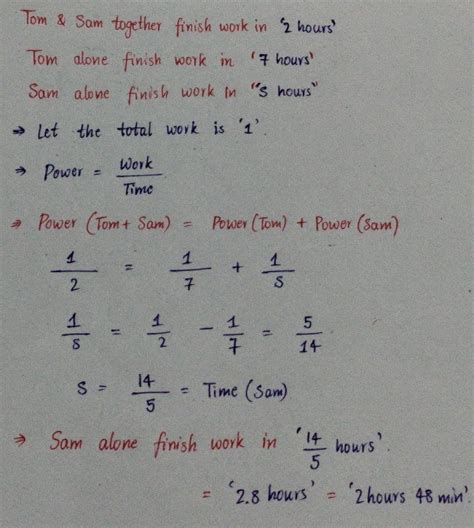 Tom & Sam together finish work in '2 hours'
Tom alone finish work in '7 hours'
Sam alone finish work in "S hours"
⇒ Let the total work is '1'.
⇒ Power = Work / Time
⇒ Power (Tom + Sam) = Power (Tom) + Power (Sam)
1/2 = 1/7 + 1/S
1/S = 1/2 - 1/7 = 5/14
S = 14/5 = Time (Sam)
⇒ Sam alone finish work in '14/5 hours'.
= '2.8 hours' = '2 hours 48 min'.